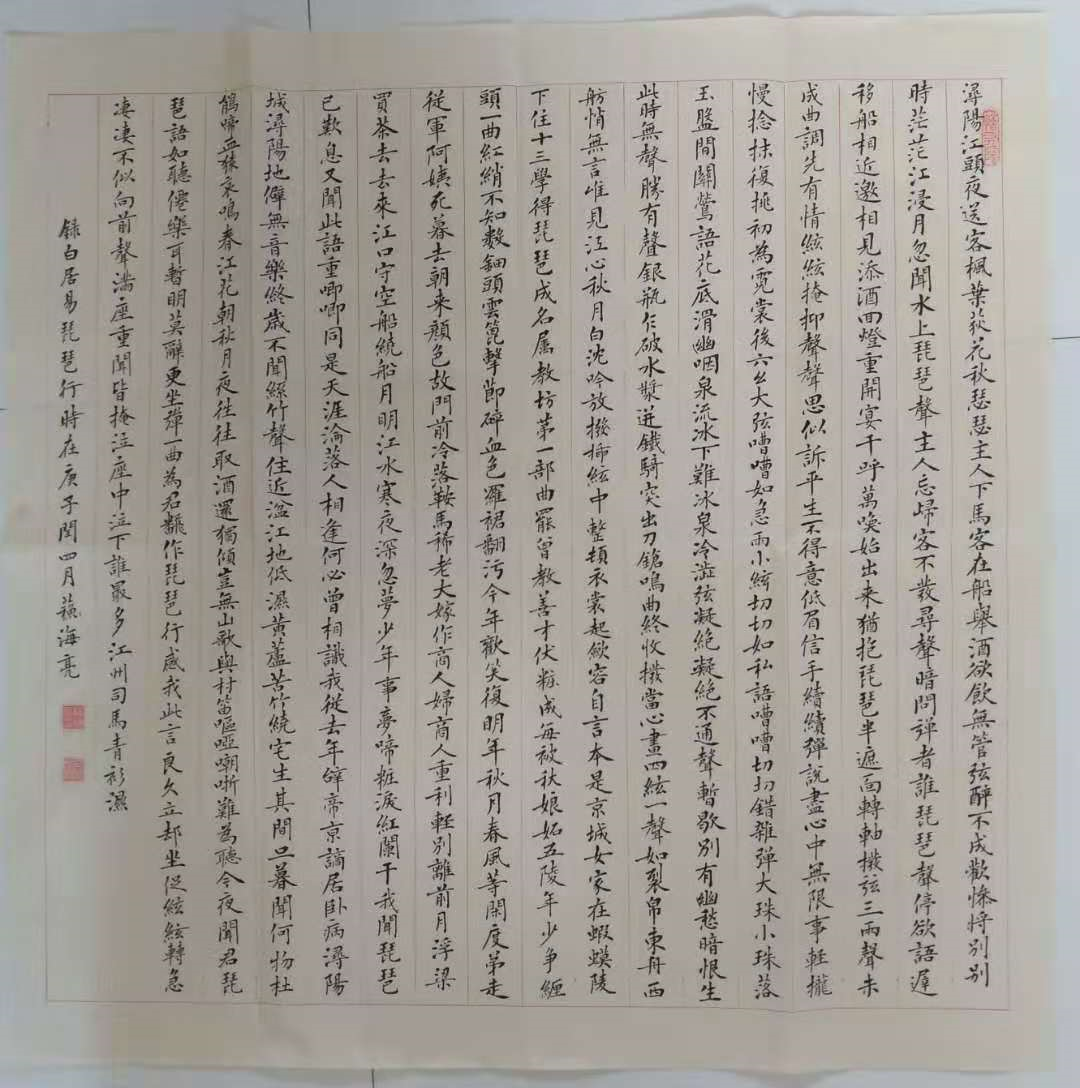 潯陽江頭夜送客楓葉荻花秋瑟瑟主人下馬客在船舉酒欲飲無管弦醉不成歡慘將別別
時茫茫江浸月忽聞水上琵琶聲主人忘歸客不發尋聲暗問弹者誰琵琶聲停欲語遲
移船相近邀相見添酒回燈重開宴千呼萬喚始出来猶抱琵琶半遮面轉軸撥弦三兩聲未
成曲調先有情絃絃掩抑聲聲思似訴平生不得意低眉信手續續彈說盡心中無限事輕攏
慢捻抹復挑初為霓裳後六幺大弦嘈嘈如急雨小絃切切如私語嘈嘈切切錯雜弹大珠小珠落
玉盤間關鶯語花底滑幽咽泉流冰下難冰泉冷澁弦凝絕凝絕不通聲暫歇別有幽愁暗恨生
此時無聲勝有聲銀瓶乍破水漿迸鐵騎突出刀鎗鳴曲終收撥當心畫四絃一聲如裂帛東舟西
舫悄無言唯見江心秋月白沈吟放撥插絃中整頓衣裳起斂容自言本是京城女家在蝦蟆陵
下住十三學得琵琶成名屬教坊第一部曲罷曾教善才伏粧成每被秋娘妬五陵年少争纏
頭一曲紅綃不知數鈿頭雲篦擊節碎血色羅裙翻污今年歡笑復明年秋月春風等閑度弟走
從軍阿姨死暮去朝来顏色故門前冷落鞍馬稀老大嫁作商人婦商人重利輕別離前月浮梁
買茶去去來江口守空船繞船月明江水寒夜深忽夢少年事夢啼粧淚紅闌干我聞琵琶
已歎息又聞此語重唧唧同是天涯淪落人相逢何必曾相識我從去年辞帝京謫居卧病潯陽
城潯陽地僻無音樂終歲不聞絲竹聲住近湓江地低濕黃蘆苦竹繞宅生其間旦暮聞何物杜
鵑啼血猿哀鳴春江花朝秋月夜往往取酒還獨傾豈無山歌與村笛嘔啞嘲哳難為聽今夜聞君琵
琶語如聽僊樂耳暫明莫辭更坐彈一曲為君飜作琵琶行感我此言良久立却坐促絃絃轉急
凄凄不似向前聲滿座重聞皆掩泣座中泣下誰最多江州司馬青衫濕
録白居易琵琶行時在庚子閏四月蘇海亮